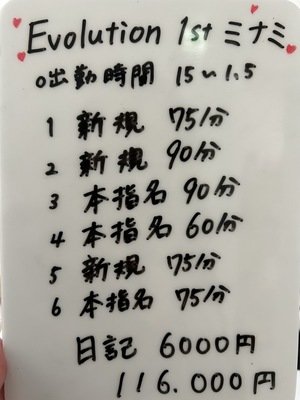 Evolution 1st ミナミ
○出勤時間 15〜1.5
1 新規 75分
2 新規 90分
3 本指名 90分
4 本指名 60分
5 新規 75分
6 本指名 75分
日記 6000円
116.000円